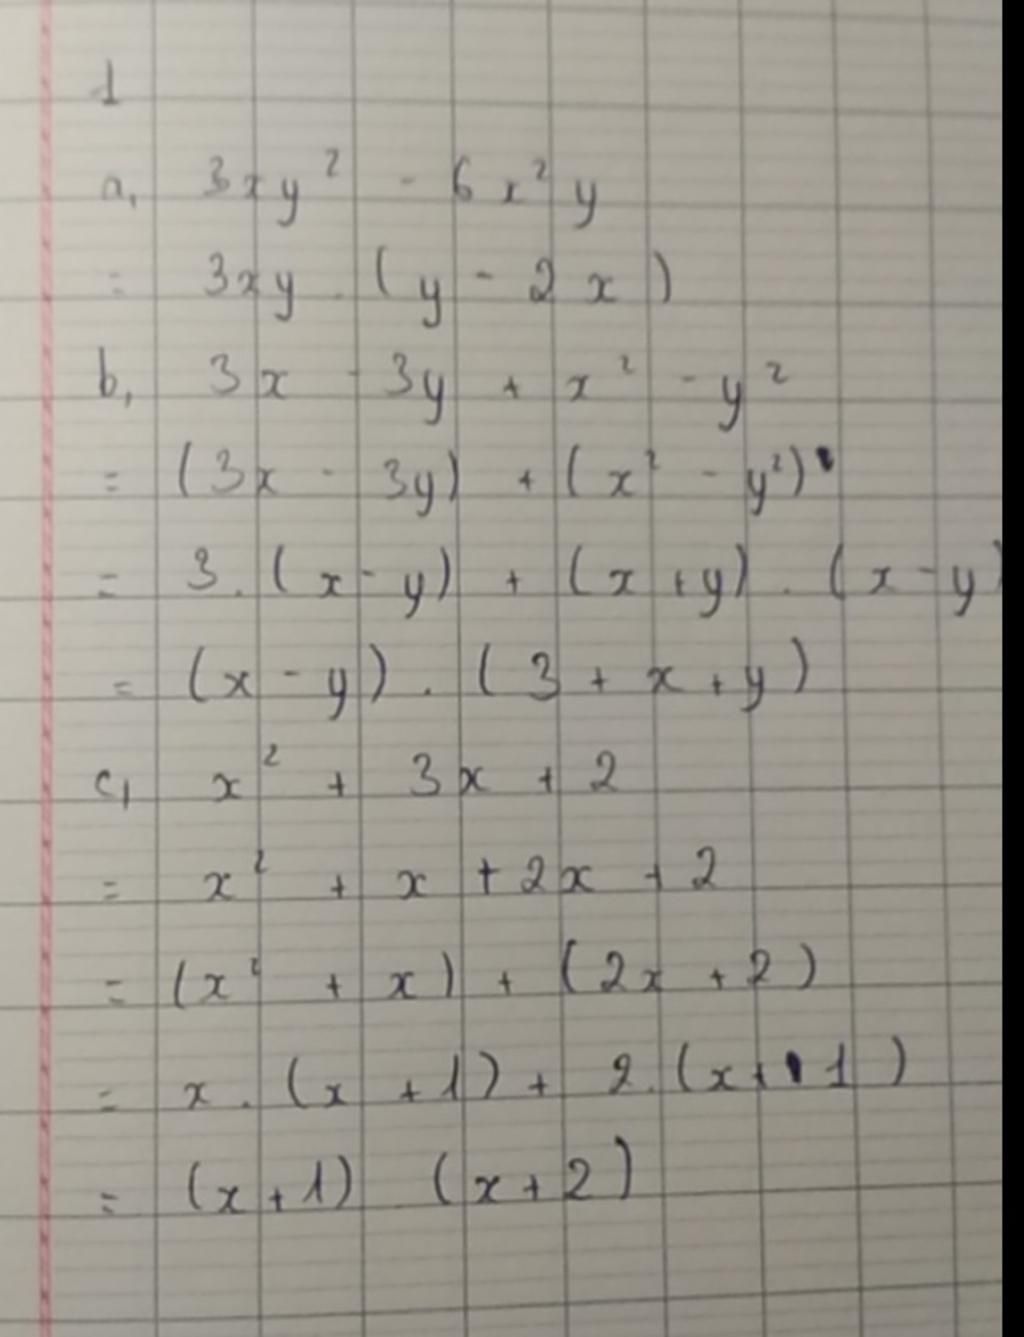 1
a, 3xy² - 6x²y
= 3xy . (y - 2x)
b, 3x - 3y + x² - y²
= (3x - 3y) + (x² - y²)
= 3 . (x - y) + (x + y) . (x - y)
= (x - y) . (3 + x + y)
c, x² + 3x + 2
= x² + x + 2x + 2
= (x² + x) + (2x + 2)
= x . (x + 1) + 2 . (x + 1)
= (x + 1) (x + 2)